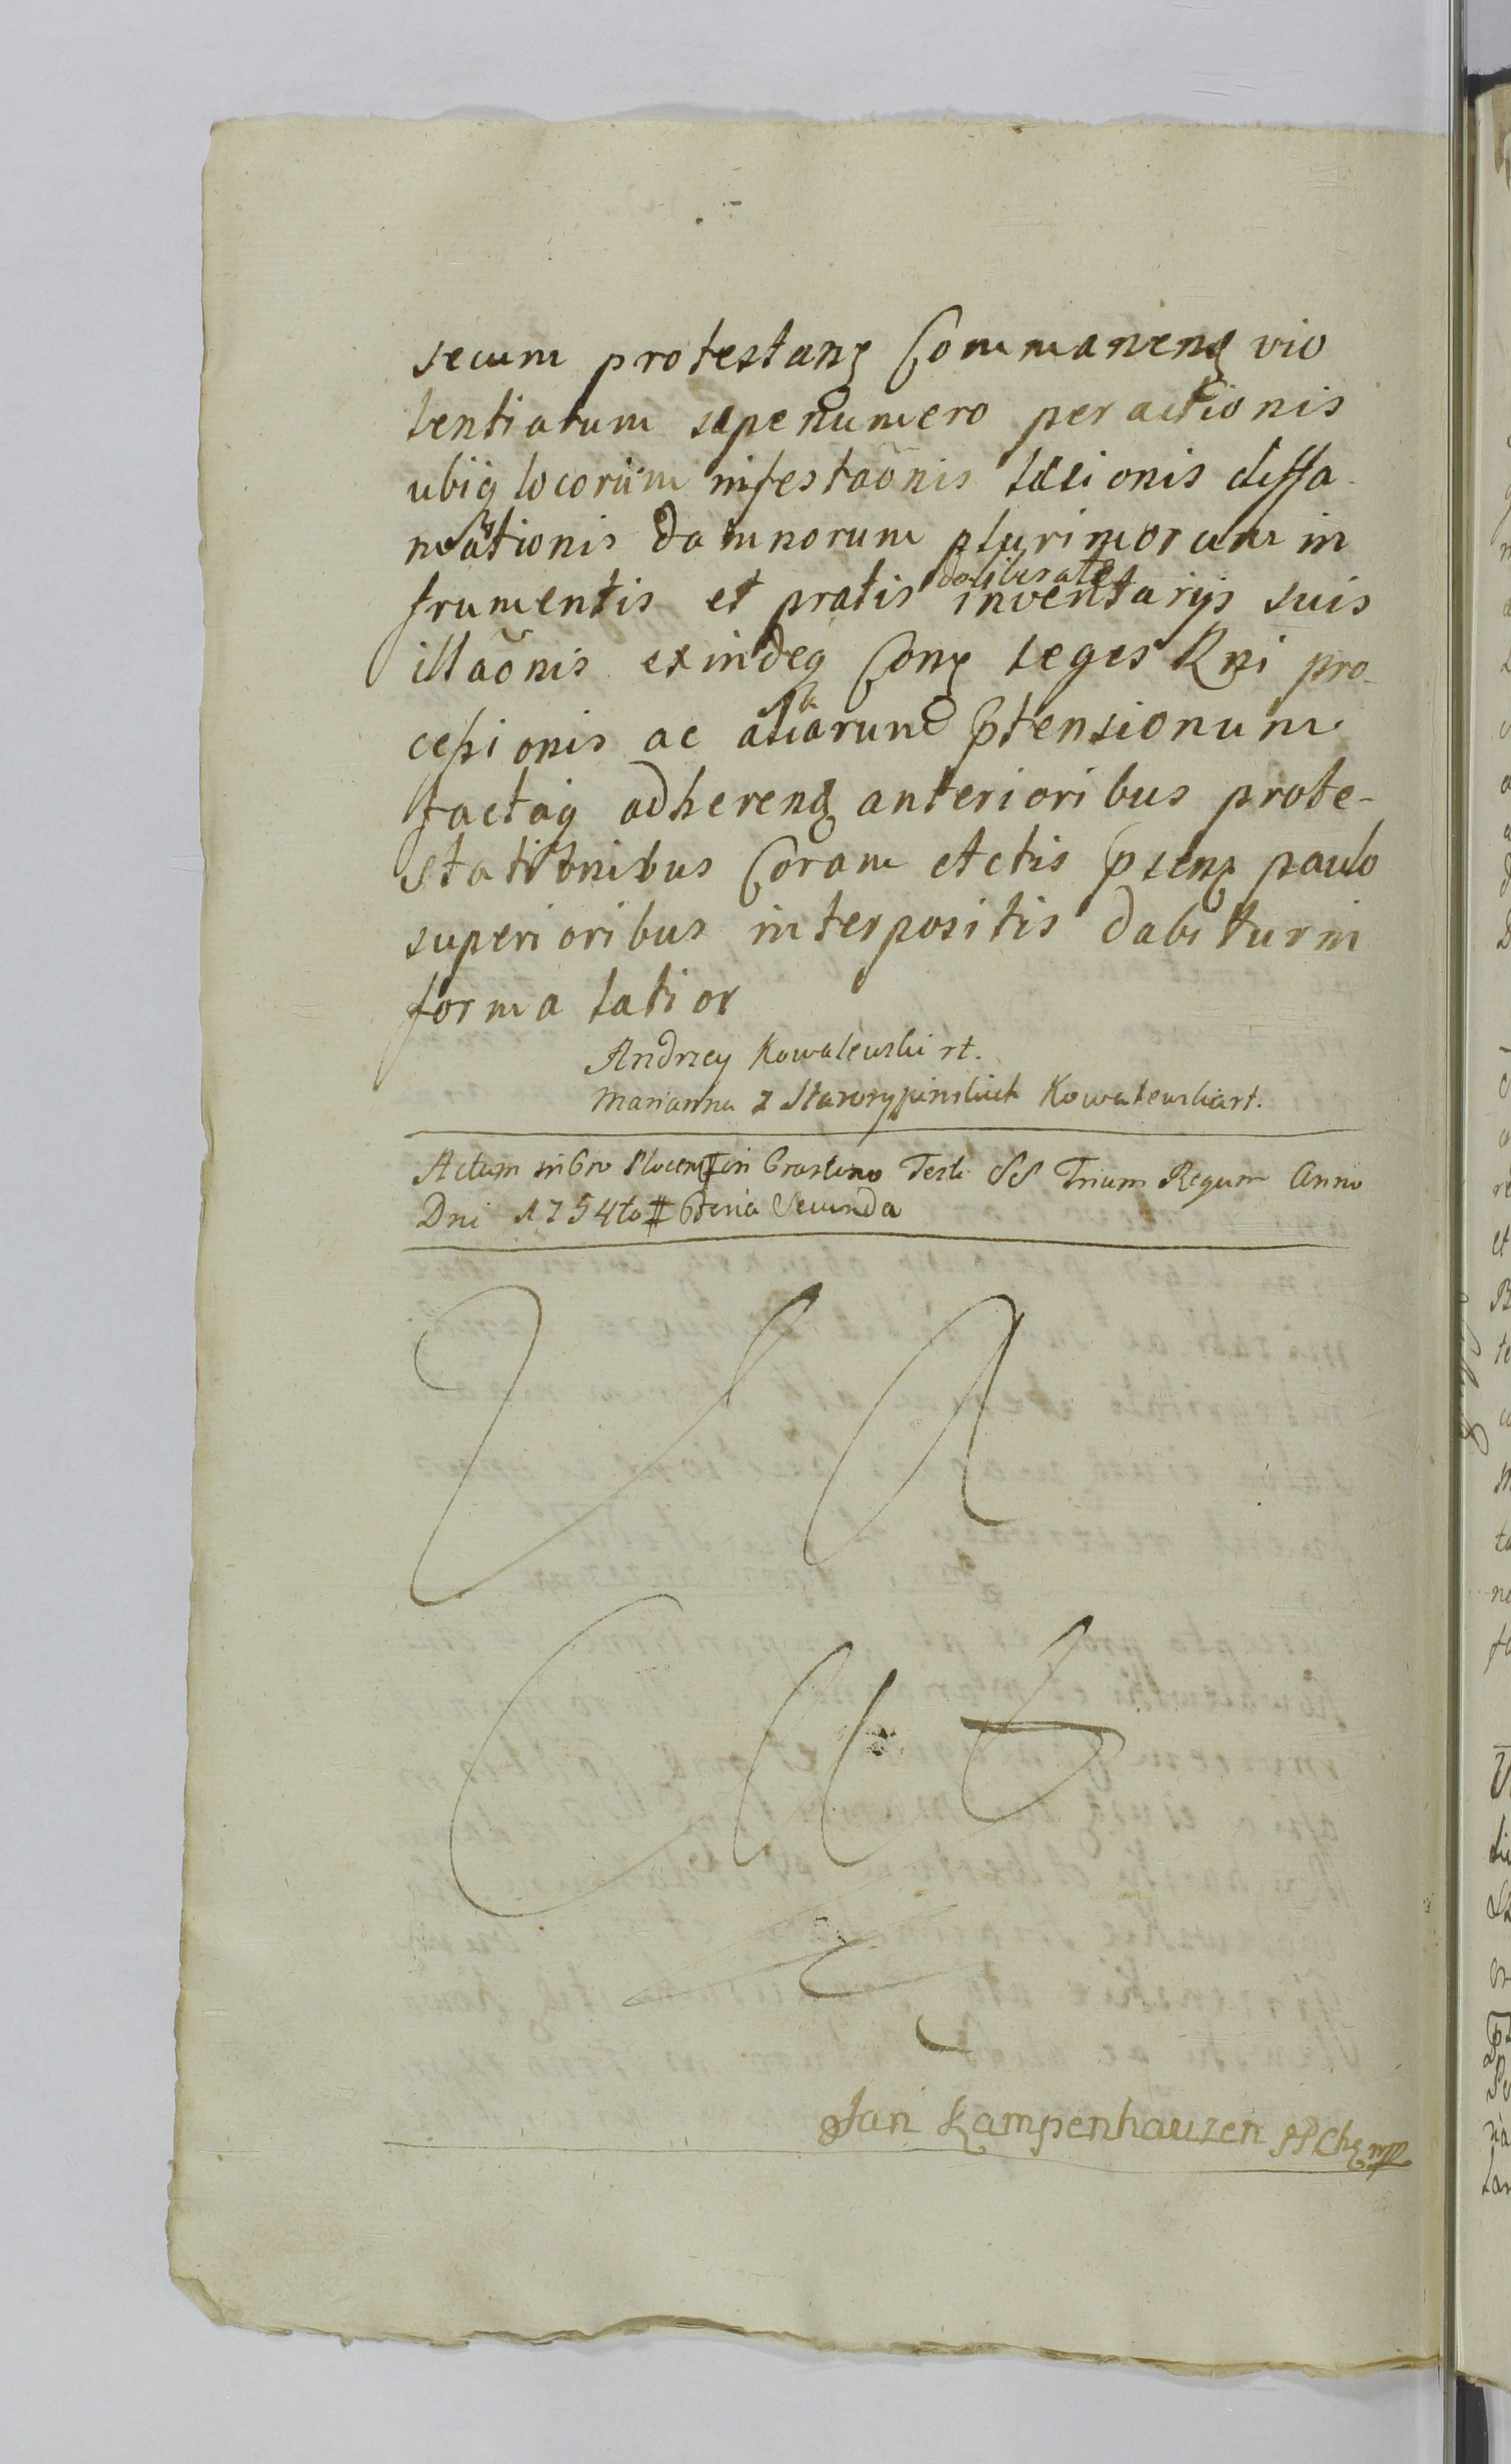 secum protestanꝫ Commanenꝗ vio
lentiarum sæpenumero peractionis
ubiꝗ locorum infestaõnis læsionis diffa-
mationis damnorum plurimorum in
deliberate
frumentis et pratis inventarijs suis
illaõnis exindeꝗ Conꝫ leges Rni pro-
cessionis ac aliarum ptensionum
factaꝗ adherenꝗ anterioribus prote-
stationibus Coram Actis psenꝫ paulo
superioribus interpositis dabitur in
forma latior
Andrzey Kowalewski rt.
Marianna z Starorypinskich Kowalewska rt.
Actum in Cro Plocenꝫ in Crastino Festi SS Trium Regum Anno
Dni 1754to Feria Secunda
Jan Kampenhauzen